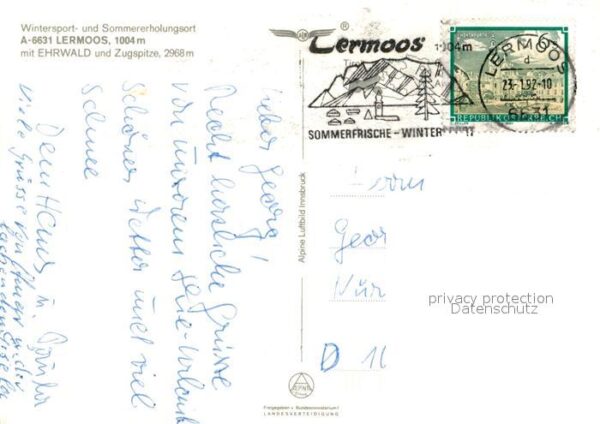 Wintersport- und Sommererholungsort
A-6631 LERMOOS, 1004 m
mit EHRWALD und Zugspitze, 2968 m
Lermoos
1004m
SOMMERFRISCHE - WINTER
LERMOOS
d
23.-1.92-10
6631
REPUBLIK ÖSTERREICH
Lieber Georg!
Recht herzliche Grüsse
von unserem Urlaub
Schönes Wetter und viel
Schnee
Dein Hans u.
Viele Grüsse
Alpine Luftbild Innsbruck
Herrn
Geor
Nür
D
privacy protection
Datenschutz
Freigegeben v. Bundesministerium f.
LANDESVERTEIDIGUNG